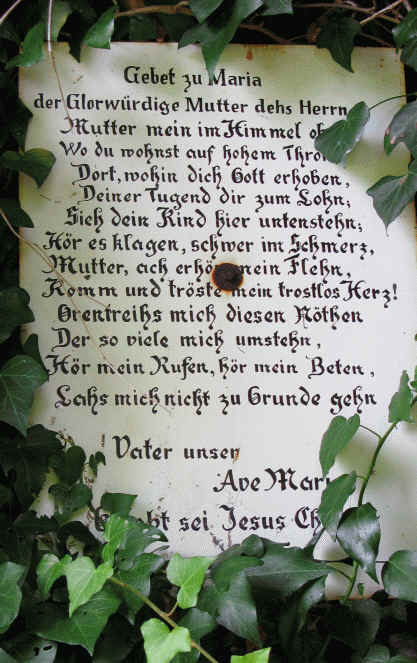 Gebet zu Maria
der Glorwürdige Mutter dehs Herrn
Mutter mein im Himmel
Wo du wohnst auf hohem Thron
Dort, wohin dich Gott erhoben,
Deiner Tugend dir zum Lohn;
Sieh dein Kind hier untenstehn;
Hör es klagen, schwer im Schmerz,
Mutter, ach erhör mein Flehn,
Komm und tröste mein trostlos Herz!
Grentreihs mich diesen Nöthen
Der so viele mich umstehn,
Hör mein Rufen, hör mein Beten,
Lahs mich nicht zu Grunde gehn
Vater unser
Ave Mari
sei Jesus Ch